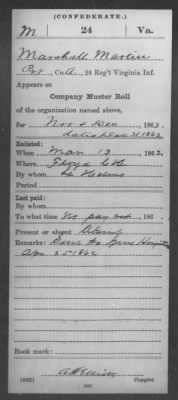 (CONFEDERATE.)
M 24 Va.
Marshall Martin
Pvt, Co. A, 24 Reg't Virginia Inf.
Appears on
Company Muster Roll
of the organization named above,
for Nov & Dec 1862.
dated Dec 31 1862
Enlisted:
When Mar 13, 1862.
Where Floyd C.H.
By whom
Period
Last paid:
By whom
To what time No pay , 186 .
Present or absent Absent
Remarks: Sent to Genl Hospital
Apr 25 1862
Book mark:
(642) Copyist.